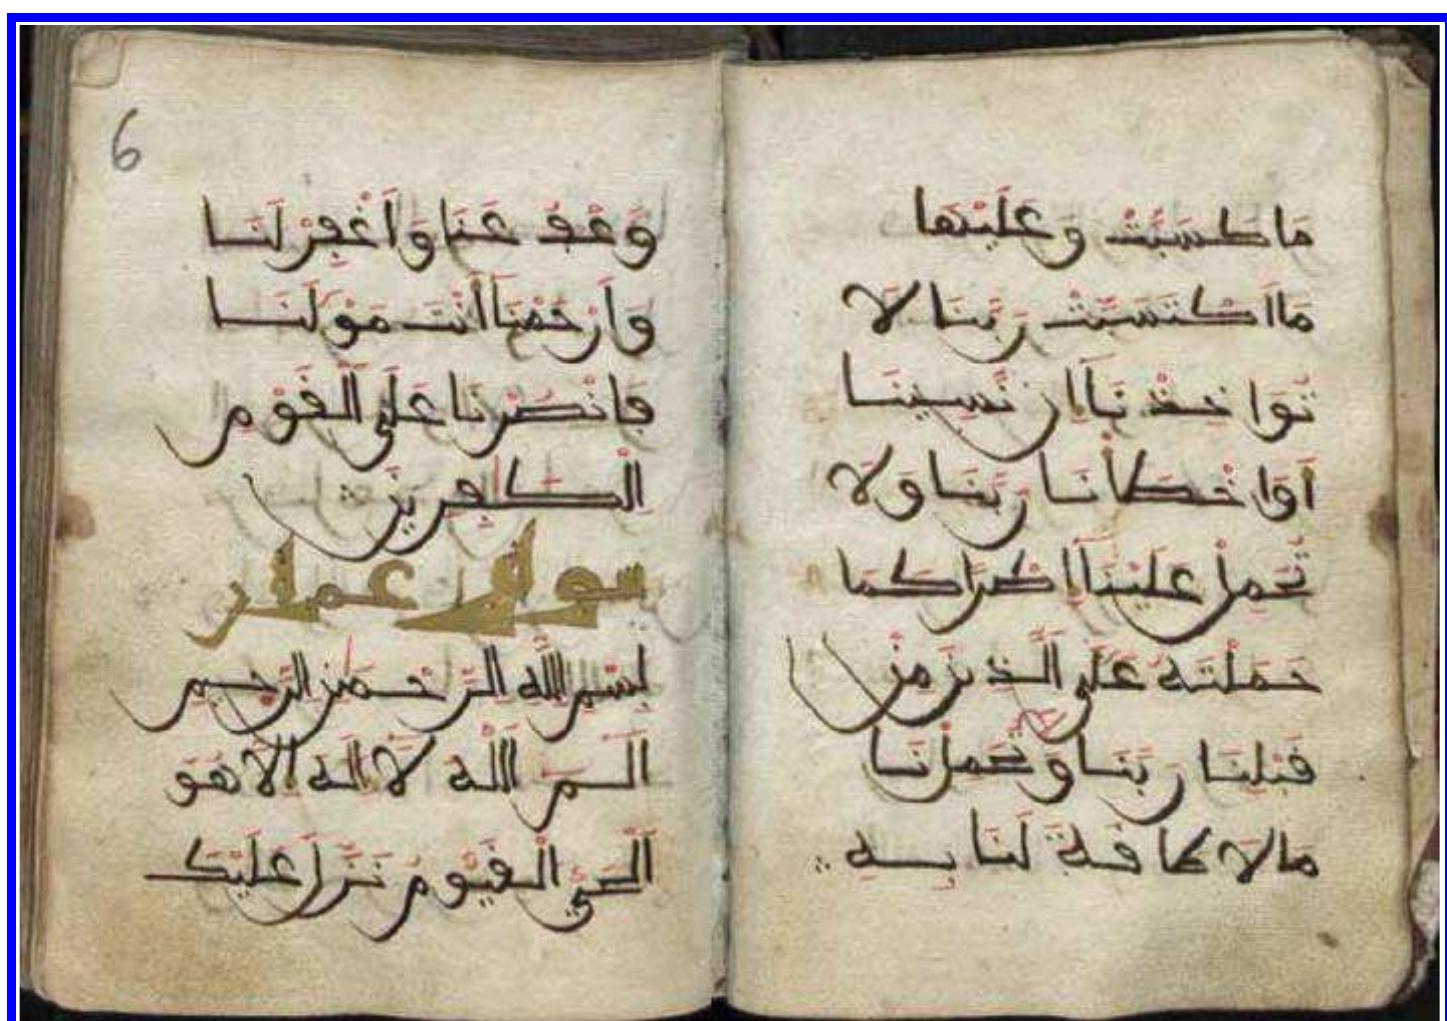 ما كسبت وعليها
ما اكتسبت ربنا لا
تواخذنا ان نسينا
او اخطانا ربنا ولا
تحمل علينا اصرا كما
حملته على الذين من
قبلنا ربنا ولا تحملنا
ما لا طاقة لنا به
6
وعف عنا واغفر لنا
وارحمنا انت مولنا
فانصرنا على القوم
الكفرين
سورة ال عمرن
بسم الله الرحمن الرحيم
الم الله لا اله الا هو
الحي القيوم نزل عليك